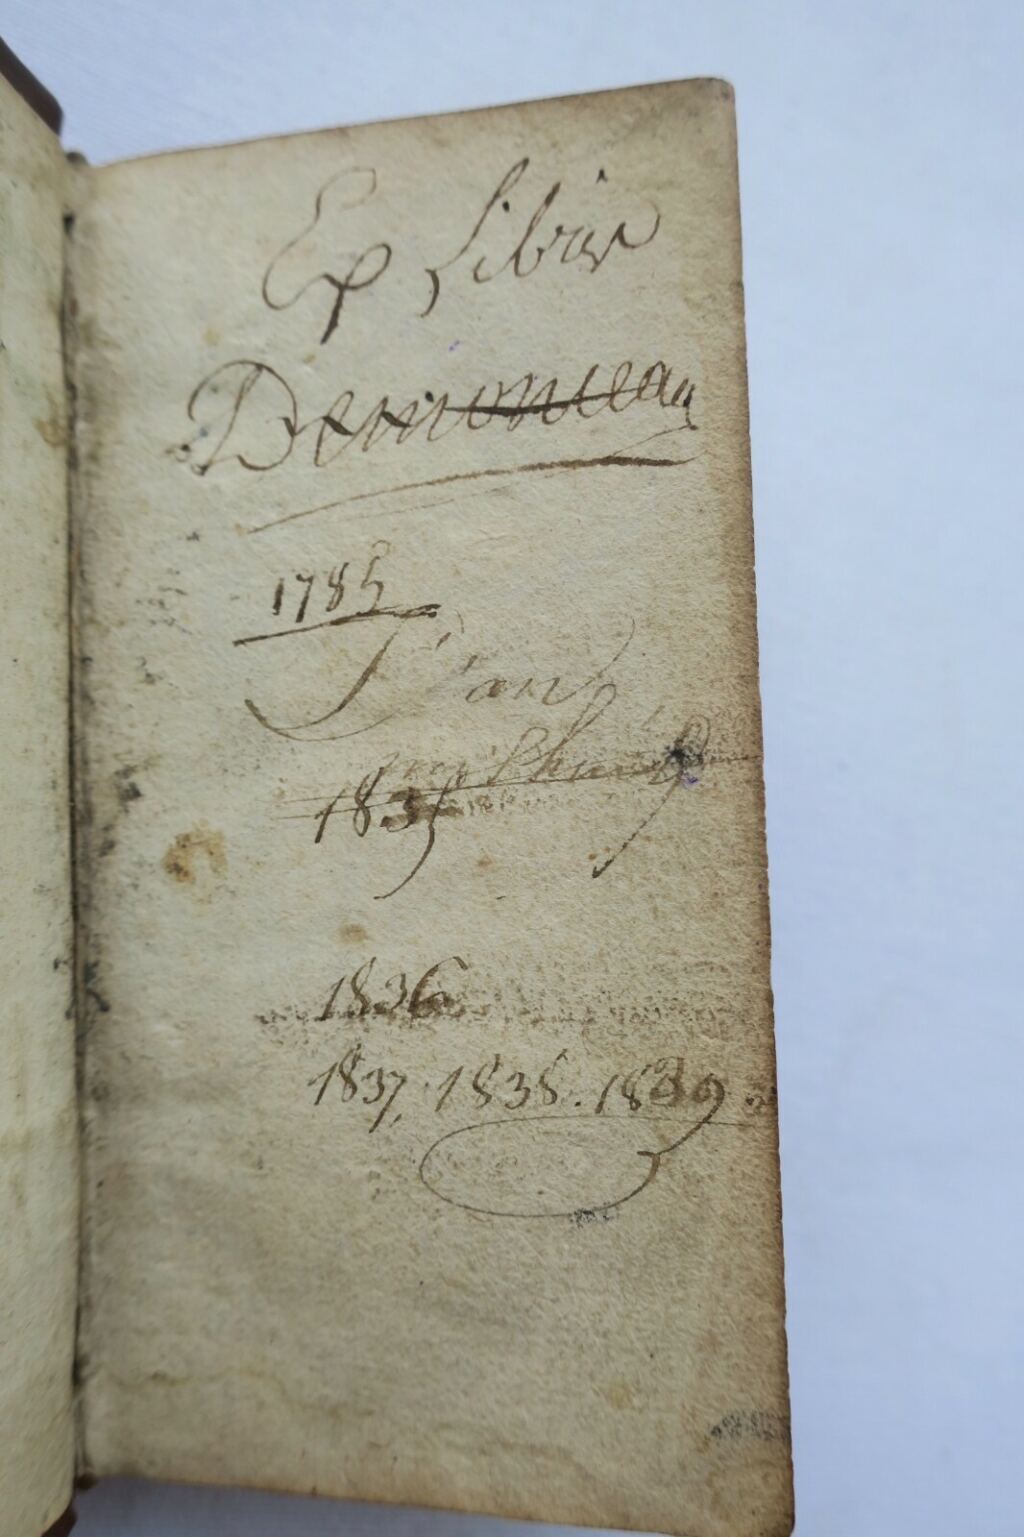 Ex Libris
Demonceau
1785
L'an
1835
1836
1837. 1838. 1839